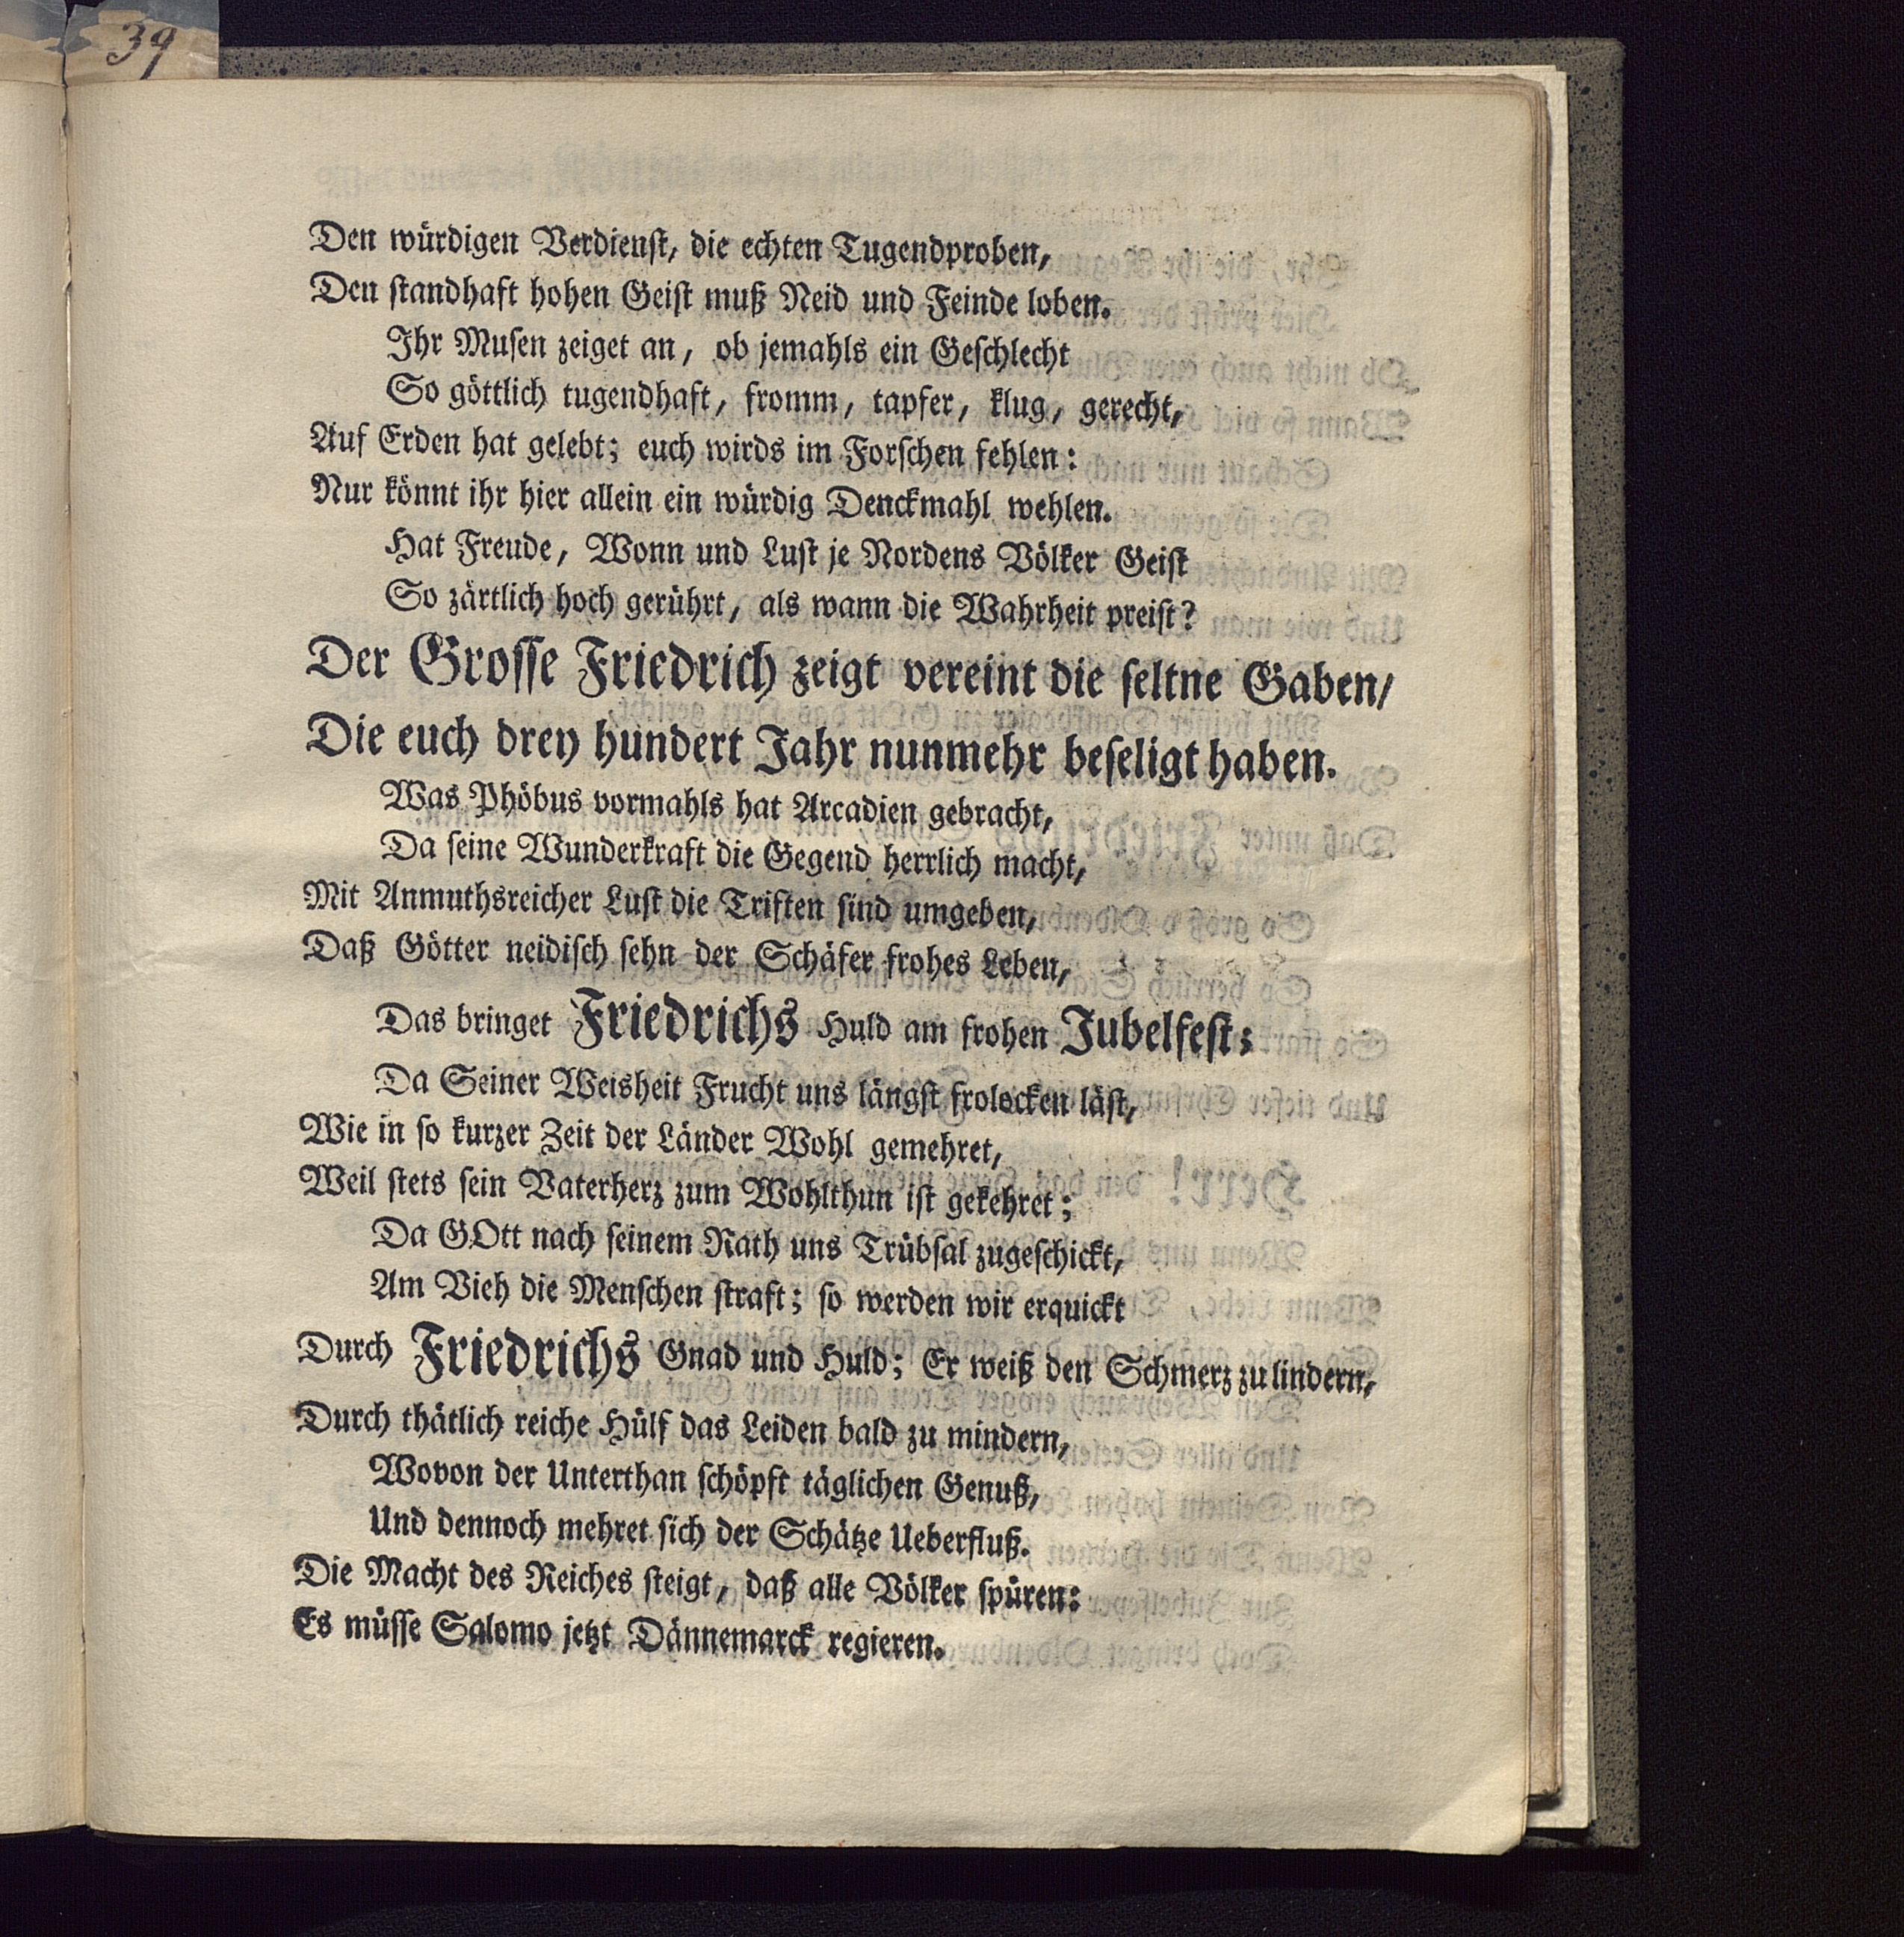 39
Den würdigen Verdienst, die echten Tugendproben,
Den standhaft hohen Geist muß Neid und Feinde loben.
Ihr Musen zeiget an, ob jemahls ein Geschlecht
So göttlich tugendhaft, fromm, tapfer, klug, gerecht,
Auf Erden hat gelebt; euch wirds im Forschen fehlen:
Nur könnt ihr hier allein ein würdig Denckmahl wehlen.
Hat Freude, Wonn und Lust je Nordens Völker Geist
So zärtlich hoch gerührt, als wann die Wahrheit preist?
Der Grosse Friedrich zeigt vereint die seltne Gaben/
Die euch drey hundert Jahr nunmehr beseligt haben.
Was Phöbus vormahls hat Arcadien gebracht,
Da seine Wunderkraft die Gegend herrlich macht,
Mit Anmuthsreicher Lust die Triften sind umgeben,
Daß Götter neidisch sehn der Schäfer frohes Leben,
Das bringet Friedrichs Huld am frohen Jubelfest;
Da Seiner Weisheit Frucht uns längst frolocken läst,
Wie in so kurzer Zeit der Länder Wohl gemehret,
Weil stets sein Vaterherz zum Wohlthun ist gekehret;
Da GOtt nach seinem Rath uns Trübsal zugeschickt,
Am Vieh die Menschen straft; so werden wir erquickt
Durch Friedrichs Gnad und Huld; Er weiß den Schmerz zu lindern,
Durch thätlich reiche Hülf das Leiden bald zu mindern,
Wovon der Unterthan schöpft täglichen Genuß,
Und dennoch mehret sich der Schätze Ueberfluß.
Die Macht des Reiches steigt, daß alle Völker spüren:
Es müsse Salomo jetzt Dännemarck regieren.